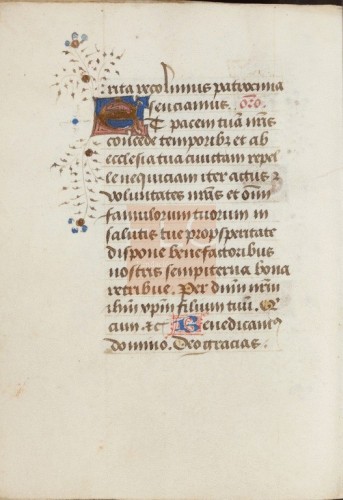 rita recolimus patrocinia
senciamus. oro.
Et pacem tuā nr̄is
concede temporibꝫ et ab
ecclesia tua cunctam repel
le nequiciam iter actus ꝫ
voluntates nr̄as et oīm
famulorum tuorum in
salutis tue propsperitate
dispone benefactoribus
nostris sempiterna bona
retribue. Per dnm̄ nr̄m
ihm̄ xp̄m filium tuū. Qr
cum &c Benedicamꝰ
domino. Deo gracias.